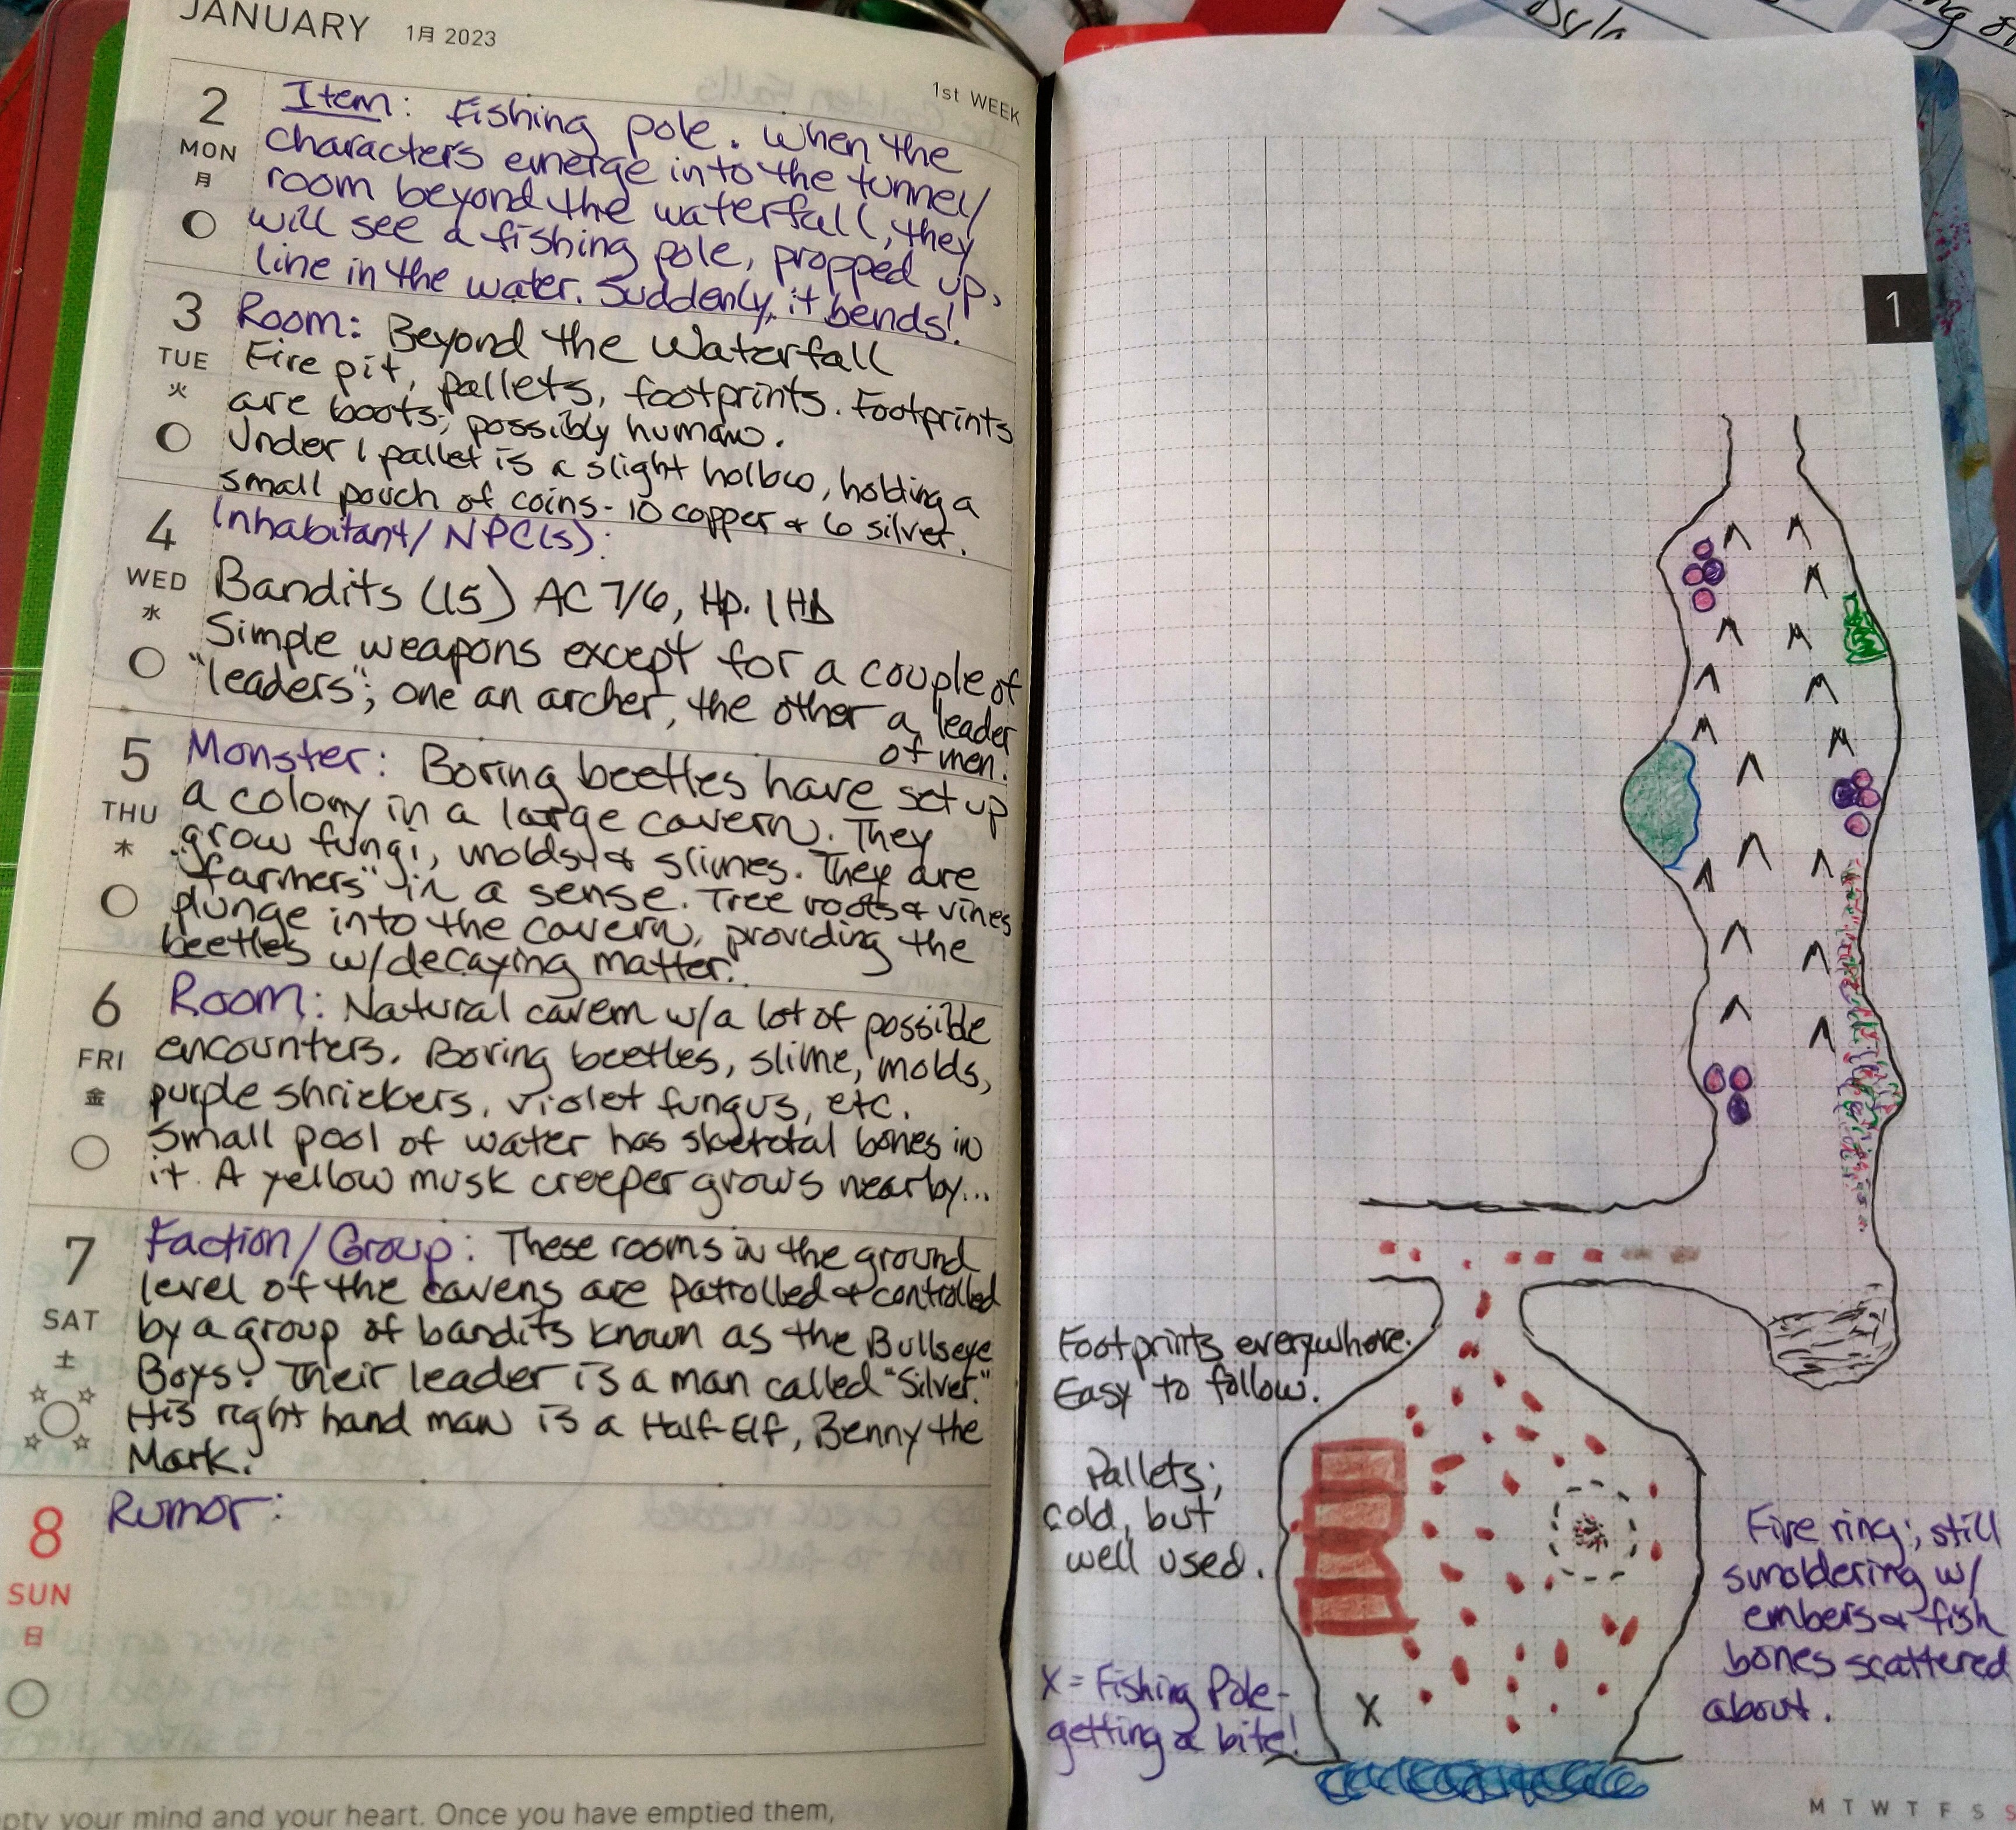 JANUARY 1月 2023
1st WEEK
2
MON
月
Item: Fishing pole. When the
characters emerge into the tunnel/
room beyond the waterfall, they
will see a fishing pole, propped up,
line in the water. Suddenly, it bends!
3
TUE
火
Room: Beyond the Waterfall
Fire pit, pallets, footprints. Footprints
are boots; possibly human.
Under 1 pallet is a slight hollow, holding a
small pouch of coins - 10 copper & 6 silver.
4
WED
水
Inhabitant/NPC(s):
Bandits (15) AC 7/6, Hp. 1 HD
Simple weapons except for a couple of
"leaders"; one an archer, the other a leader
of men.
5
THU
木
Monster: Boring beetles have set up
a colony in a large cavern. They
grow fungi, molds, & slimes. They are
"farmers" in a sense. Tree roots & vines
plunge into the cavern, providing the
beetles w/decaying matter.
6
FRI
金
Room: Natural cavern w/a lot of possible
encounters. Boring beetles, slime, molds,
purple shriekers, violet fungus, etc.
Small pool of water has skeletal bones in
it. A yellow musk creeper grows nearby...
7
SAT
土
Faction/Group: These rooms in the ground
level of the cavens are patrolled & controlled
by a group of bandits known as the Bullseye
Boys. Their leader is a man called "Silver."
His right hand man is a Half-Elf, Benny the
Mark.
8
SUN
日
Rumor:
pty your mind and your heart. Once you have emptied them,
1
Footprints everywhere.
Easy to follow.
Pallets;
cold, but
well used.
X = Fishing Pole-
getting a bite!
X
Fire ring; still
smoldering w/
embers & fish
bones scattered
about.
M T W T F S S